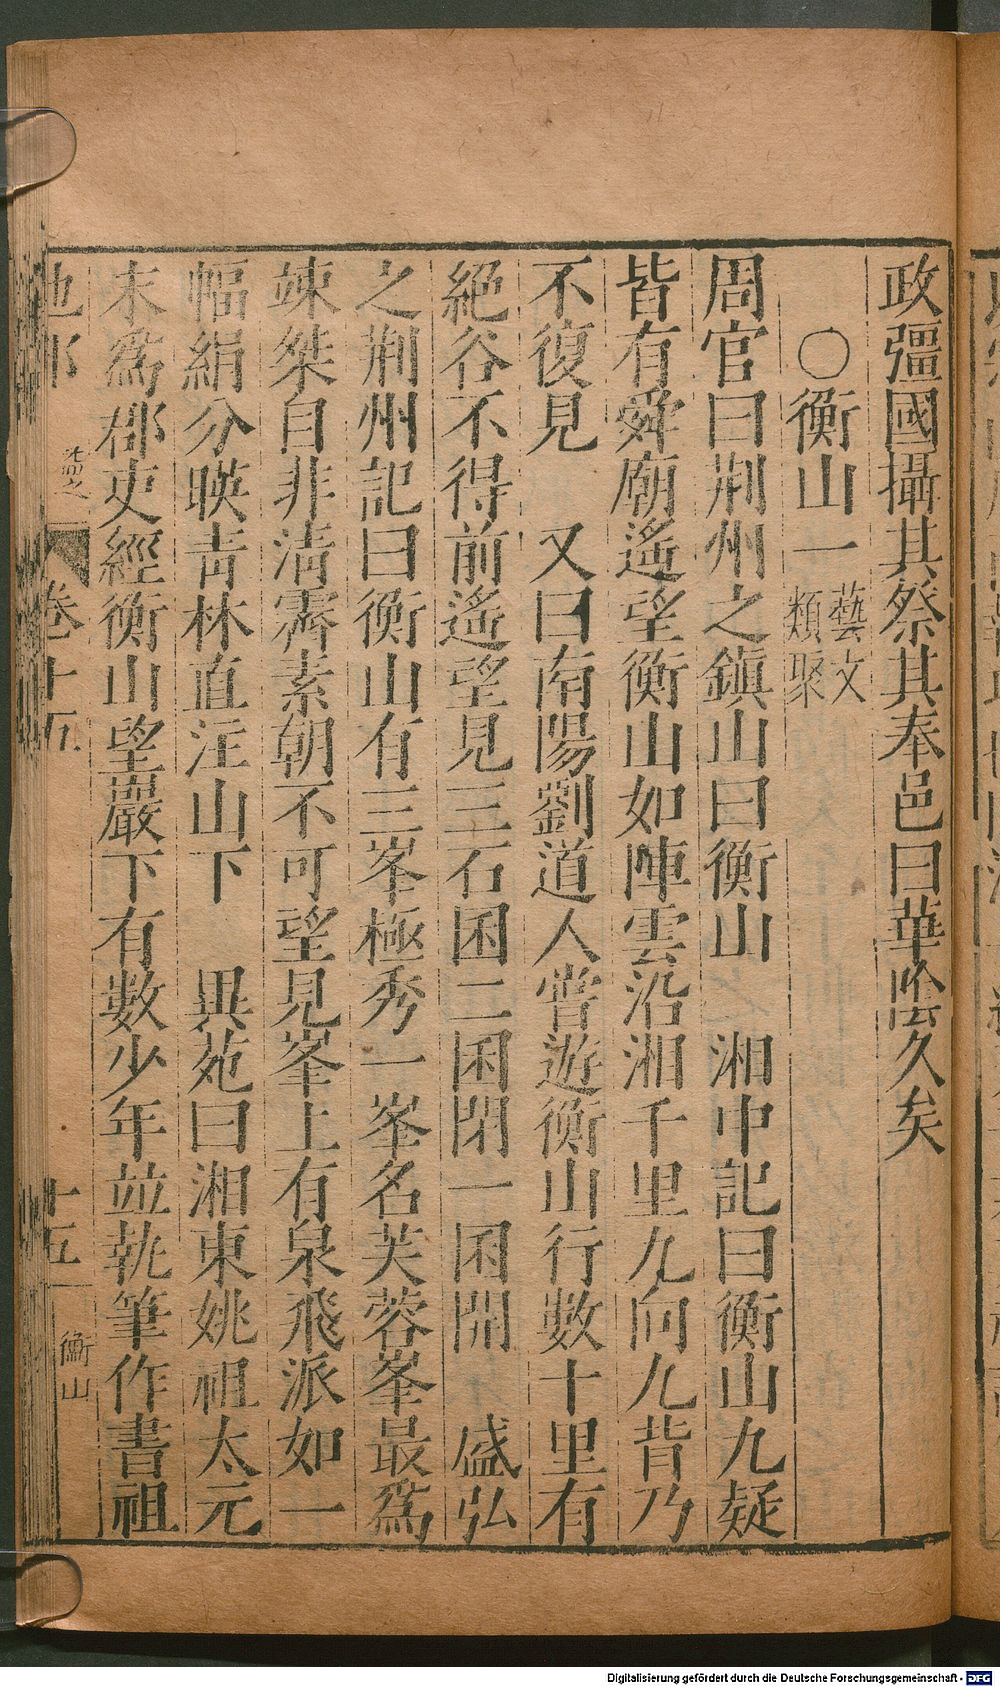 政彊國攝其祭其奉邑曰華陰久矣
○衡山一 藝文類聚
周官曰荆州之鎮山曰衡山　湘中記曰衡山九疑
皆有舜廟遙望衡山如陣雲沿湘千里九向九背乃
不復見　又曰南陽劉道人嘗遊衡山行數十里有
絕谷不得前遙望見三石囷二囷閉一囷開　盛弘
之荆州記曰衡山有三峯極秀一峯名芙蓉峯最爲
竦桀自非淸霽素朝不可望見峯上有泉飛派如一
幅絹分暎靑林直注山下　異苑曰湘東姚祖太元
末爲郡吏經衡山望巖下有數少年竝執筆作書祖
地部
卷十五
十五
衡山
Digitalisierung gefördert durch die Deutsche Forschungsgemeinschaft - DFG